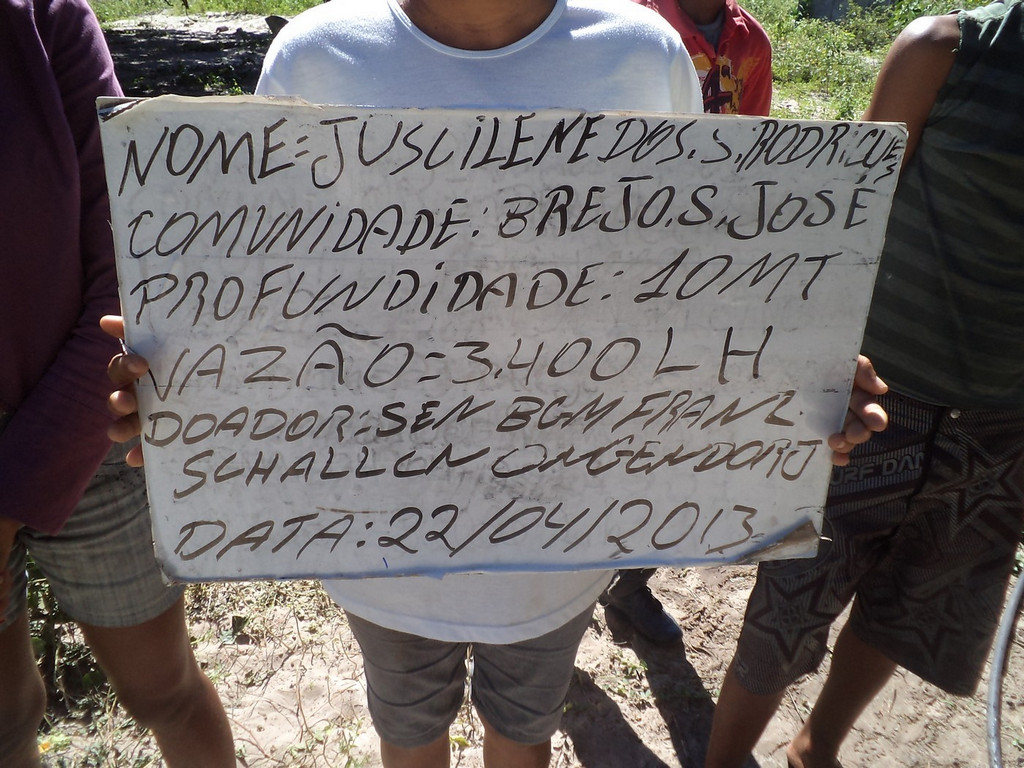 NOME=JUSCILENE DOS.S.RODRIGUES
COMUNIDADE: BREJO.S.JOSÉ
PROFUNDIDADE: 10MT
VAZÃO=3.400 L H
DOADOR: SEN BGM FRANZ.
SCHALLCN ONGENDORJ
DATA: 22/04/2013